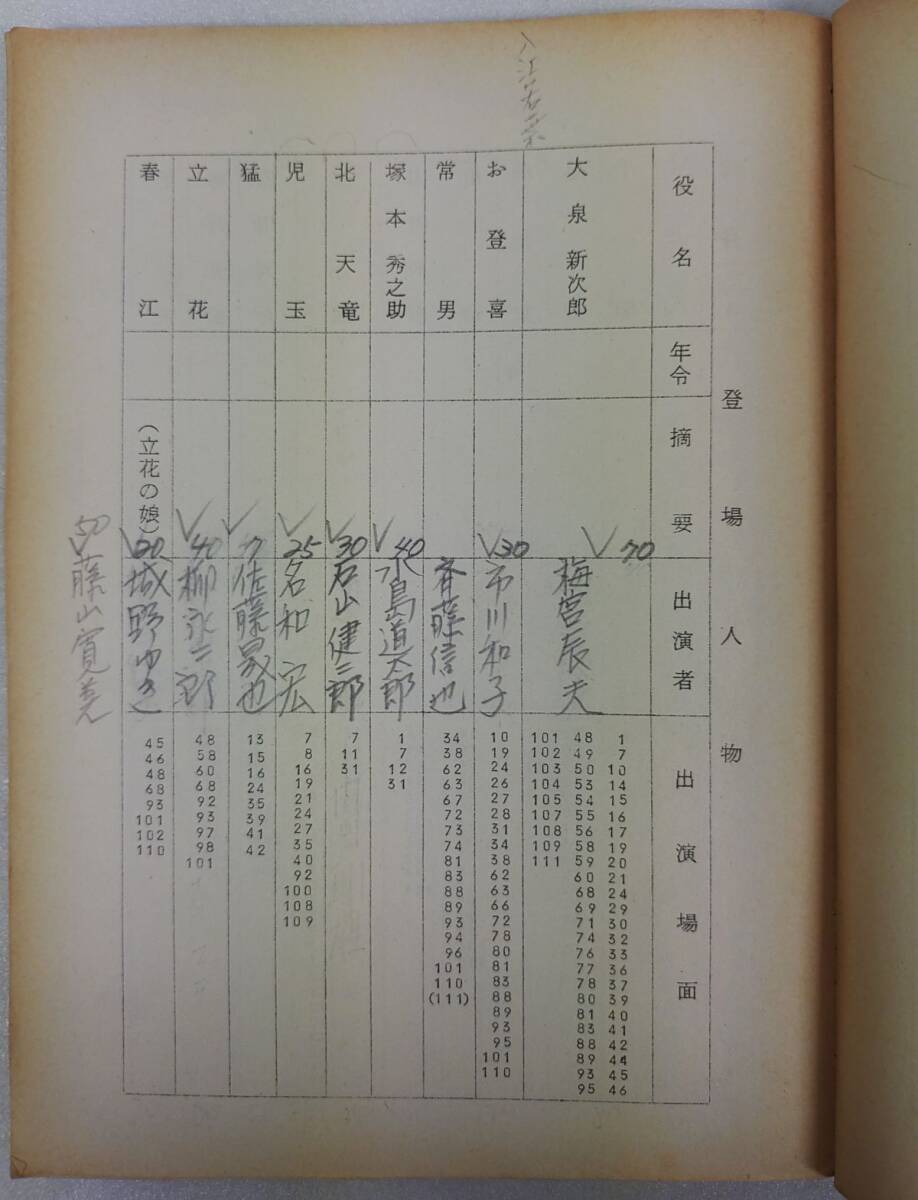 登場人物
役名
年令
摘要
出演者
出演場面
大泉新次郎
70
梅宮辰夫
1 7 10 14 15 16 17 19 20 21 24 29 30 32 33 36 37 39 40 41 42 44 45 46
48 49 50 53 54 55 56 58 59 60 68 69 71 74 76 77 78 80 81 83 88 89 93 95
101 102 103 104 105 107 108 109 111
お登喜
30
市川和子
10 19 24 26 27 28 31 34 38 62 63 66 72 78 80 81 83 88 89 93 95 101 110
常男
斉藤信也
34 38 62 63 67 72 73 74 81 83 88 89 93 94 96 101 110 (111)
塚本秀之助
40
水島道太郎
1 7 12 31
北天竜
30
石山健二郎
7 11 31
児玉
25
名和宏
7 8 16 19 21 24 27 35 40 92 100 108 109
猛
7
佐藤晟也
13 15 16 24 35 39 41 42
立花
40
柳永二郎
48 58 60 68 92 93 97 98 101
春江
(立花の娘)
20
城野ゆき
45 46 48 68 93 101 102 110
50
藤山寛美
入江若葉